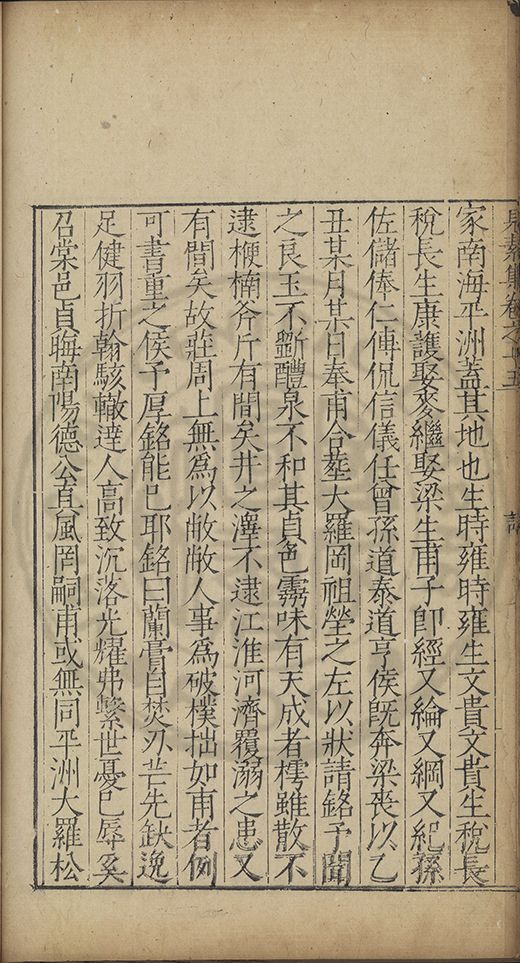 家南海平洲蓋其地也生時雍時雍生文貴文貴生稅長
稅長生康護娶麥繼娶梁生甫子即經又綸又綱又紀孫
佐儲俸仁傳侃信儀任曾孫道泰道亨侯旣奔梁喪以乙
丑某月某日奉甫合塟大羅岡祖塋之左以狀請銘予聞
之良玉不斵醴泉不和其貞色霱味有天成者樗雖散不
逮梗楠斧斤有間矣井之渾不逮江淮河濟覆溺之患又
有間矣故莊周上無為以敝敝人事為破樸拙如甫者例
可書重之侯予厚銘能已耶銘曰蘭膏自焚刃芒先缺逸
足健羽折翰駭轍達人高致沉落光耀弗繫世憂巳辱奚
召棠邑貞晦南陽德公真風罔嗣甫或無同平洲大羅松